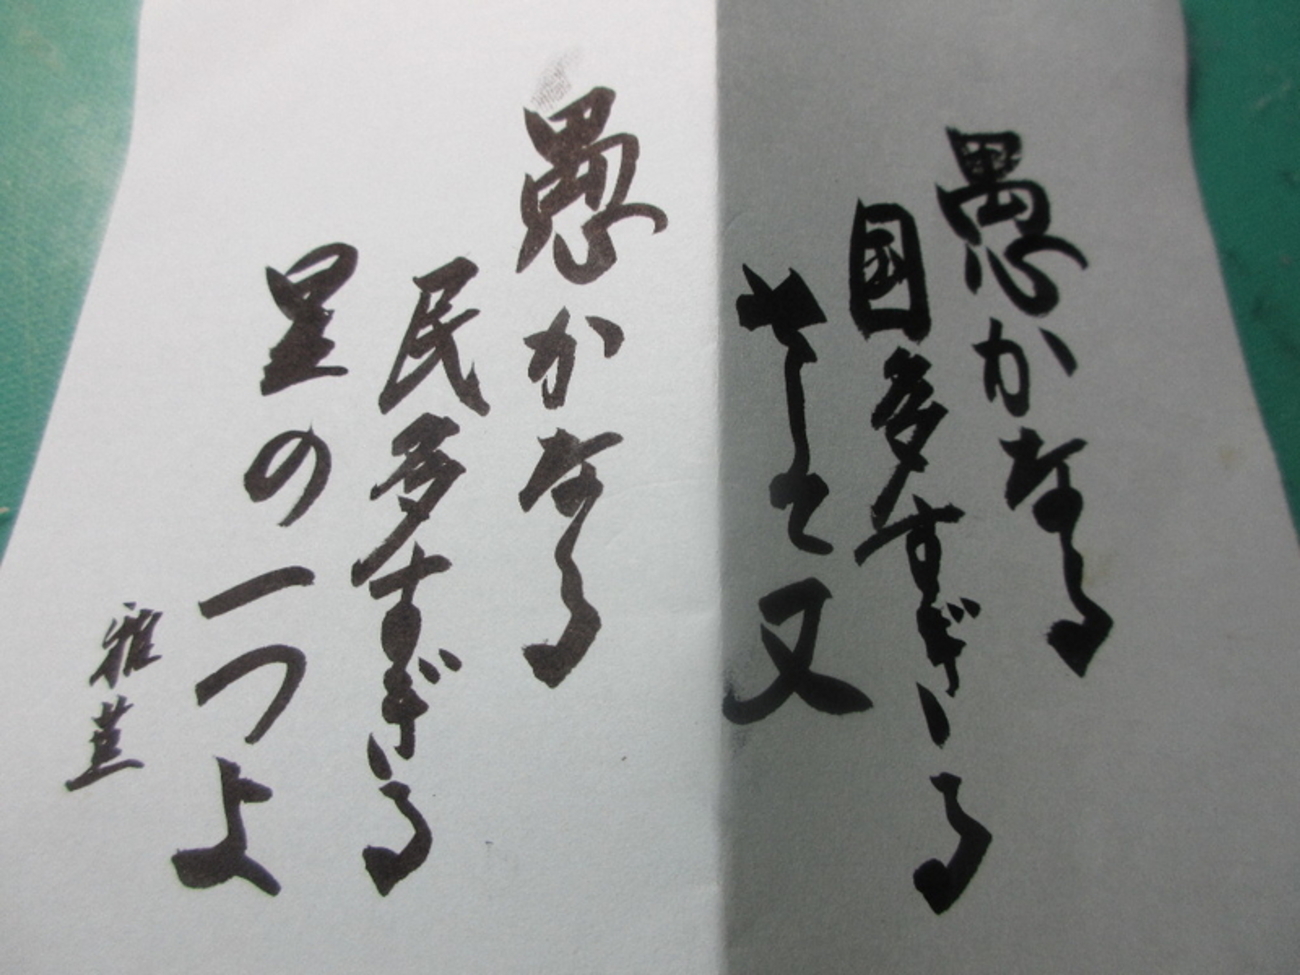 愚かなる
国多すぎる
そして又
愚かなる
民多すぎる
星の一つよ
雅